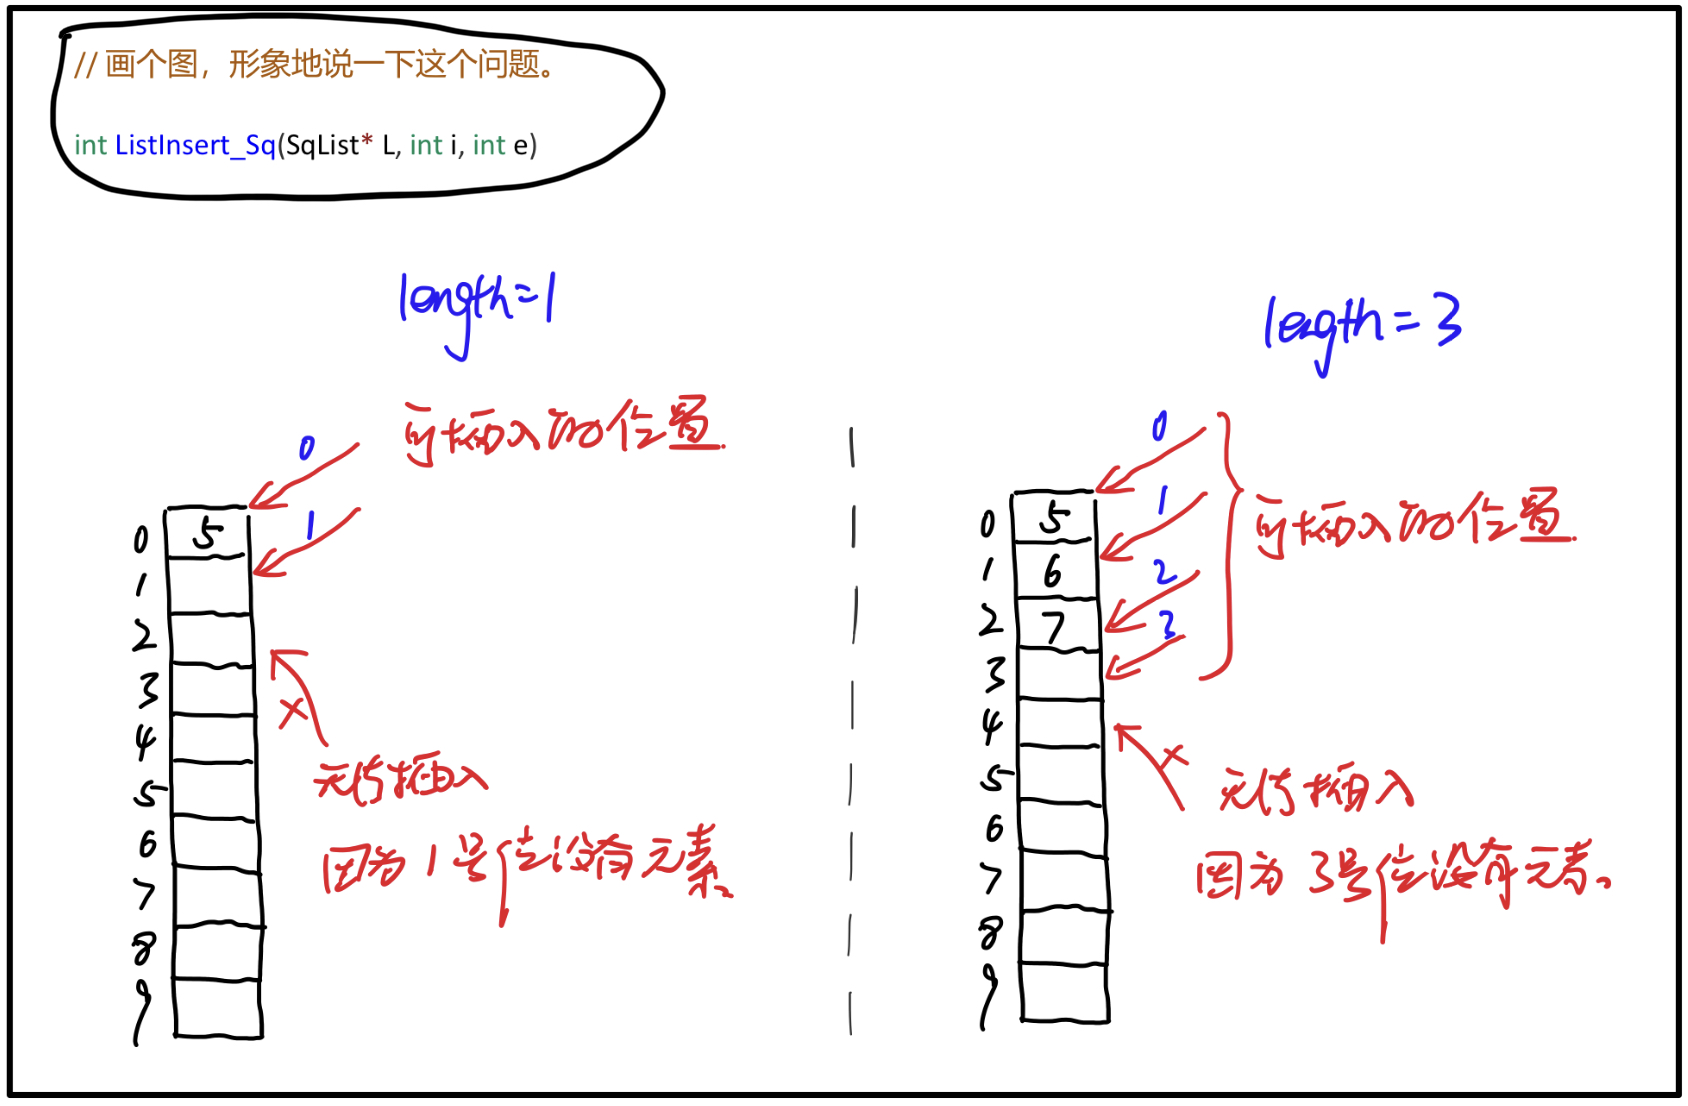 // 画个图，形象地说一下这个问题。
int ListInsert_Sq(SqList* L, int i, int e)
length=1
可插入的位置.
0
1
0 5
1
2
3
4
5
6
7
8
9
无法插入
因为1号位没有元素。
length=3
0
1
2
3
可插入的位置.
0 5
1 6
2 7
3
4
5
6
7
8
9
无法插入
因为3号位没有元素。